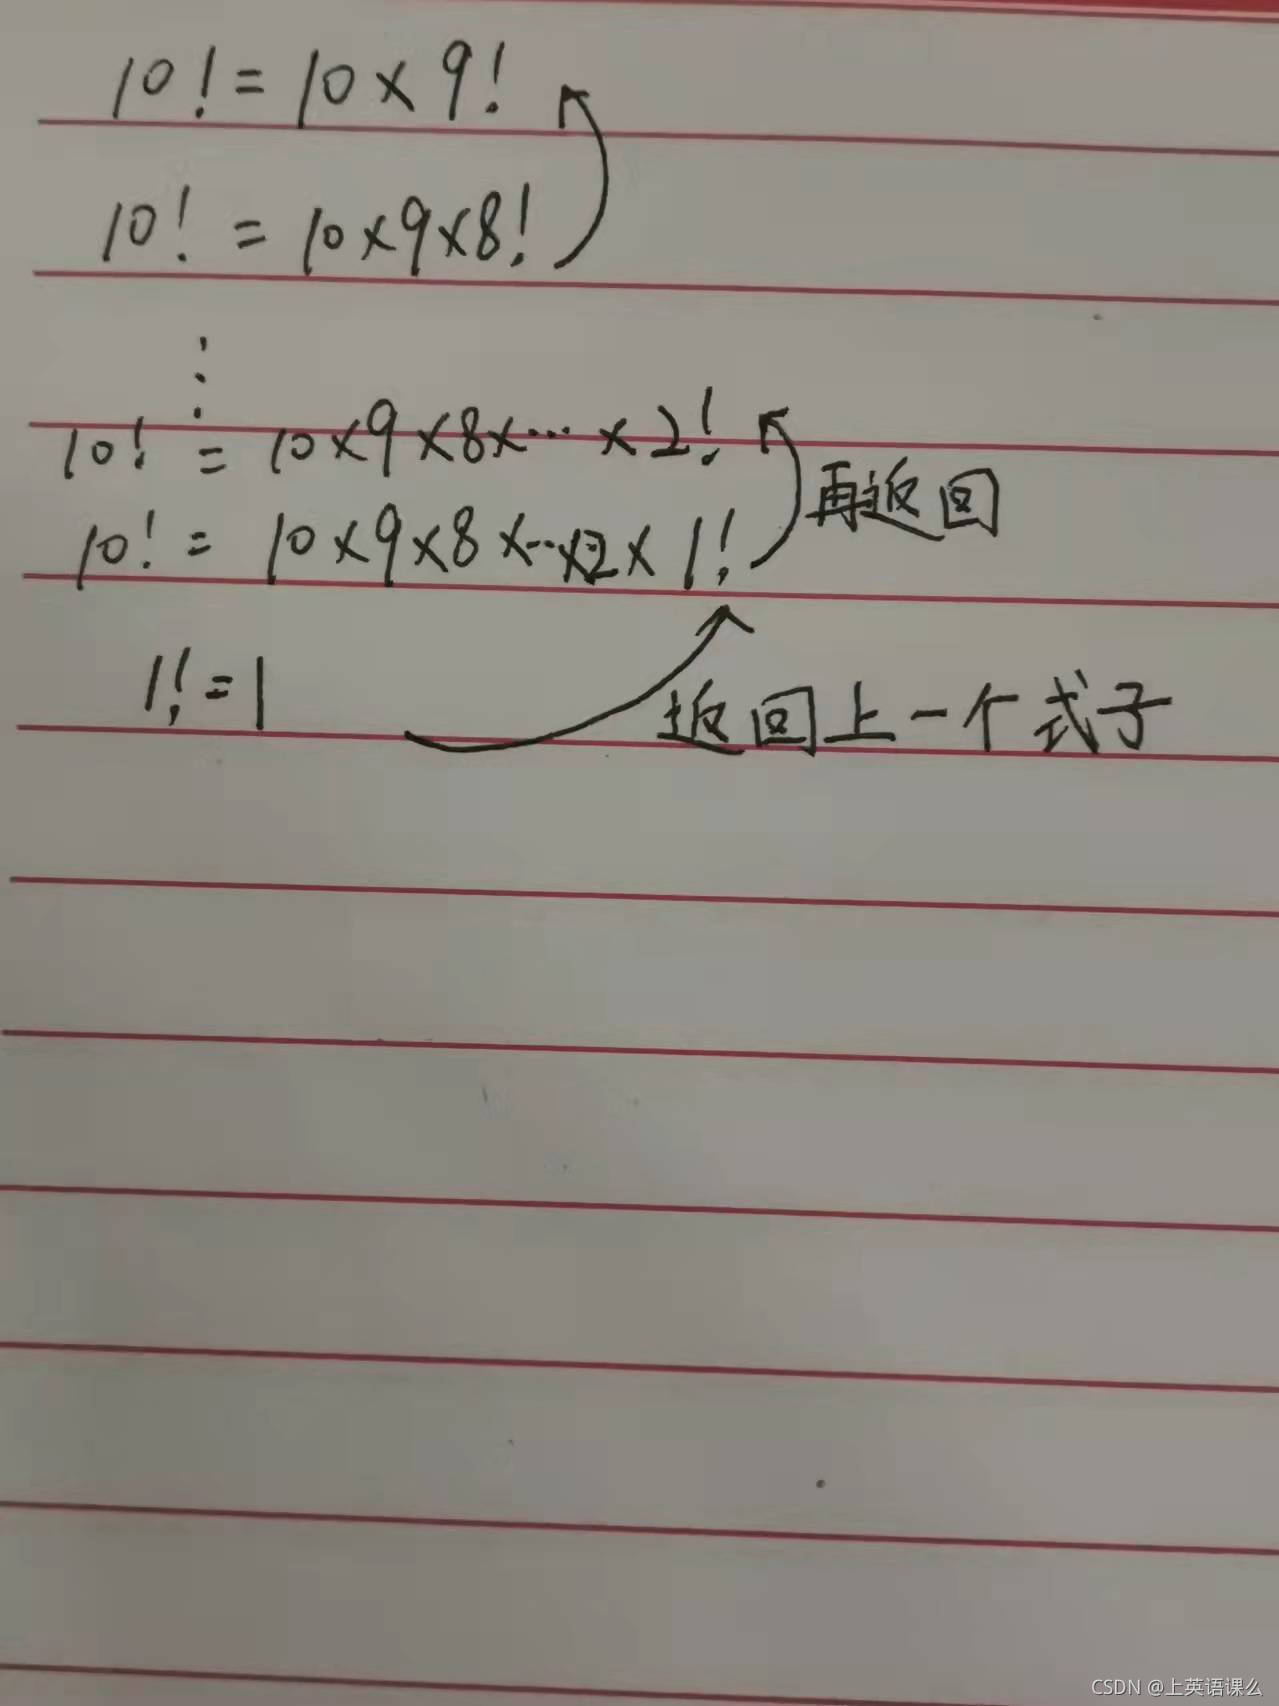 10! = 10 × 9!
10! = 10×9×8!
⋮
10! = 10×9×8×… ×2!
再返回
10! = 10×9×8×…×2× 1!
1! = 1
返回上一个式子
CSDN @上英语课么